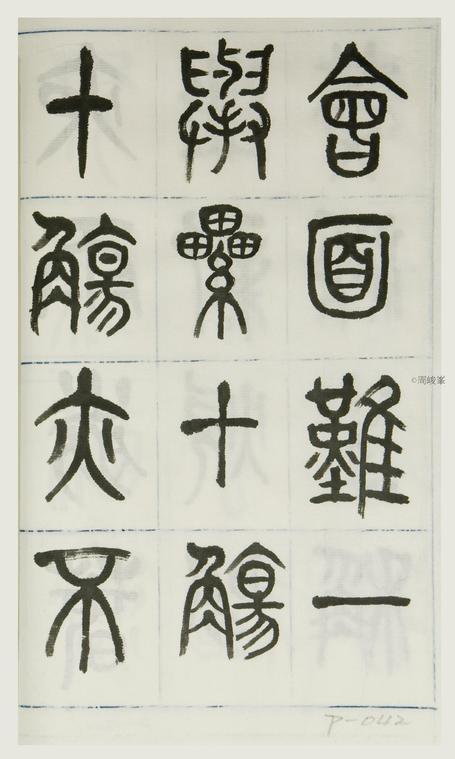 會面難一
舉纍十觴
十觴亦不
©周峻峯
P-042